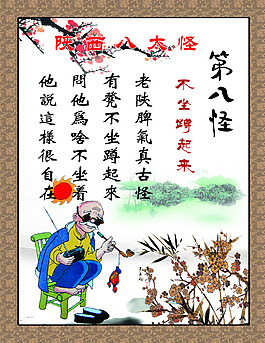 陕西八大怪
第八怪
不坐蹲起来
老陕脾氣真古怪
有凳不坐蹲起來
問他爲啥不坐着
他説這樣很自在